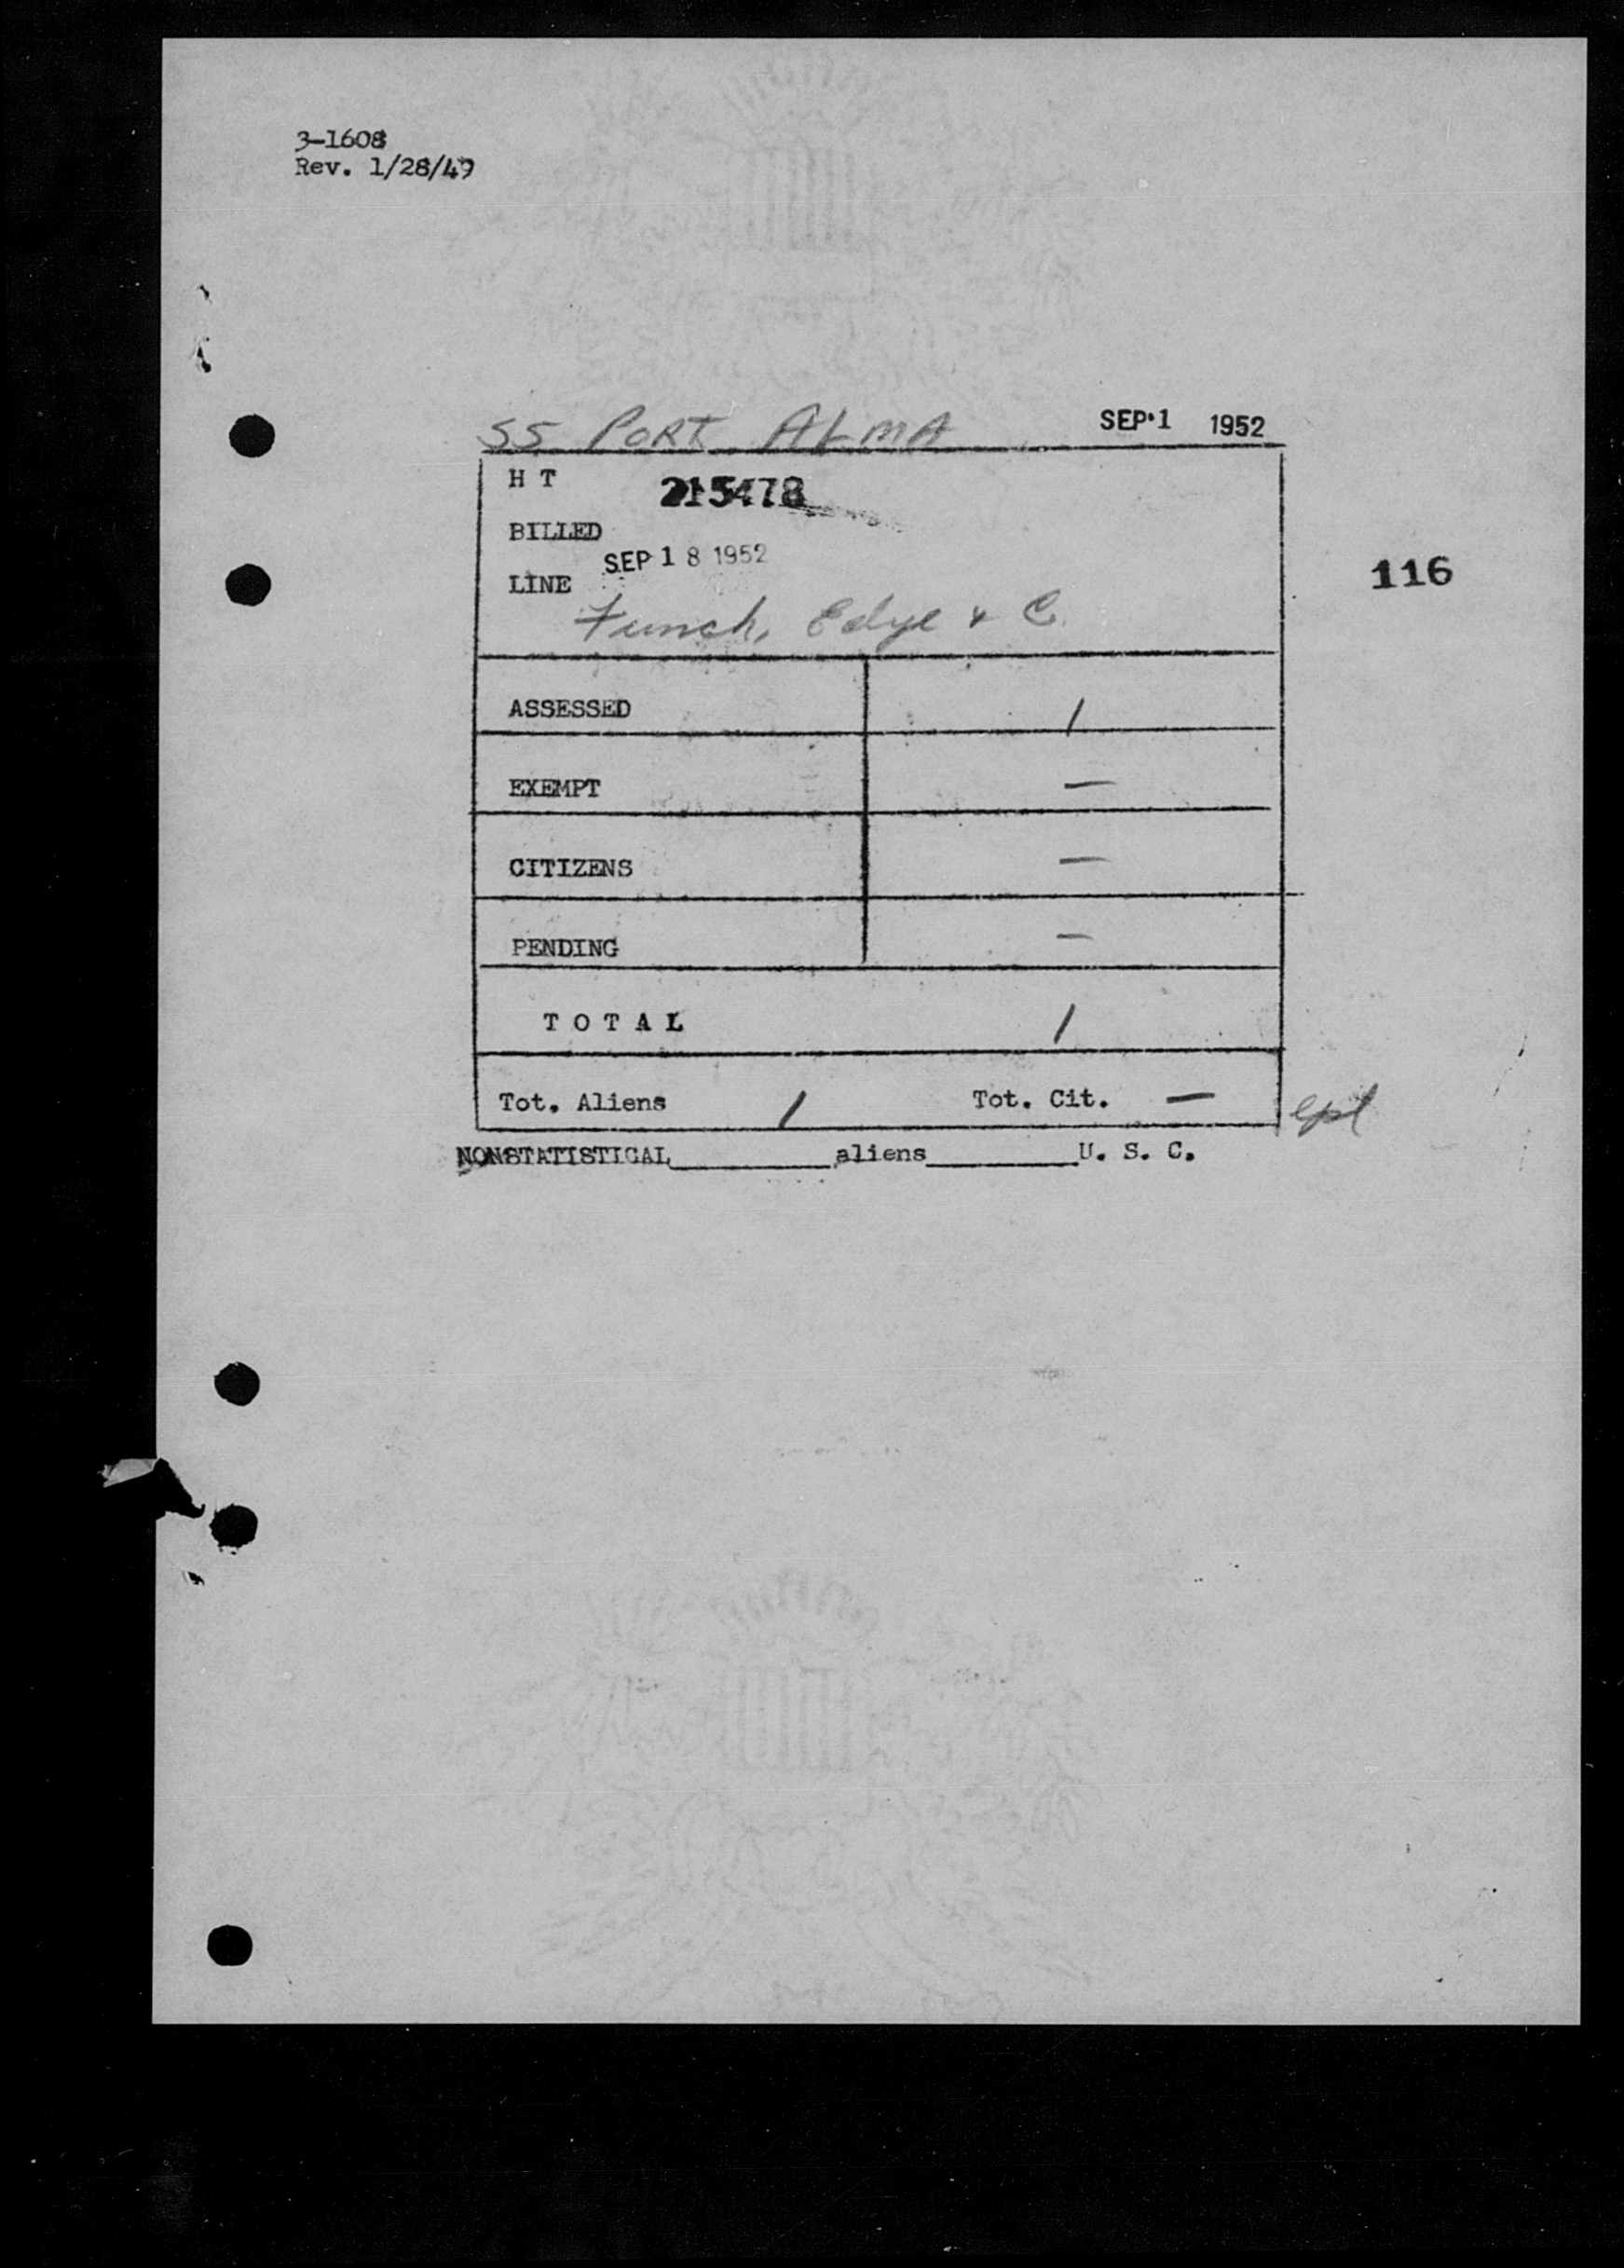 3-1608
Rev. 1/28/49
SS PORT ALMA SEP 1 1952
H T 215478
BILLED
SEP 18 1952
LINE
116
Funch, Edye & C.
ASSESSED 1
EXEMPT —
CITIZENS —
PENDING —
TOTAL 1
Tot. Aliens 1 Tot. Cit. —
NONSTATISTICAL________aliens________U. S. C.